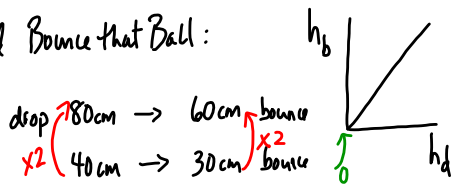 Bounce that Ball:
h_b
drop 80cm → 60cm bounce
x2 x2
40cm → 30cm bounce
0
h_d